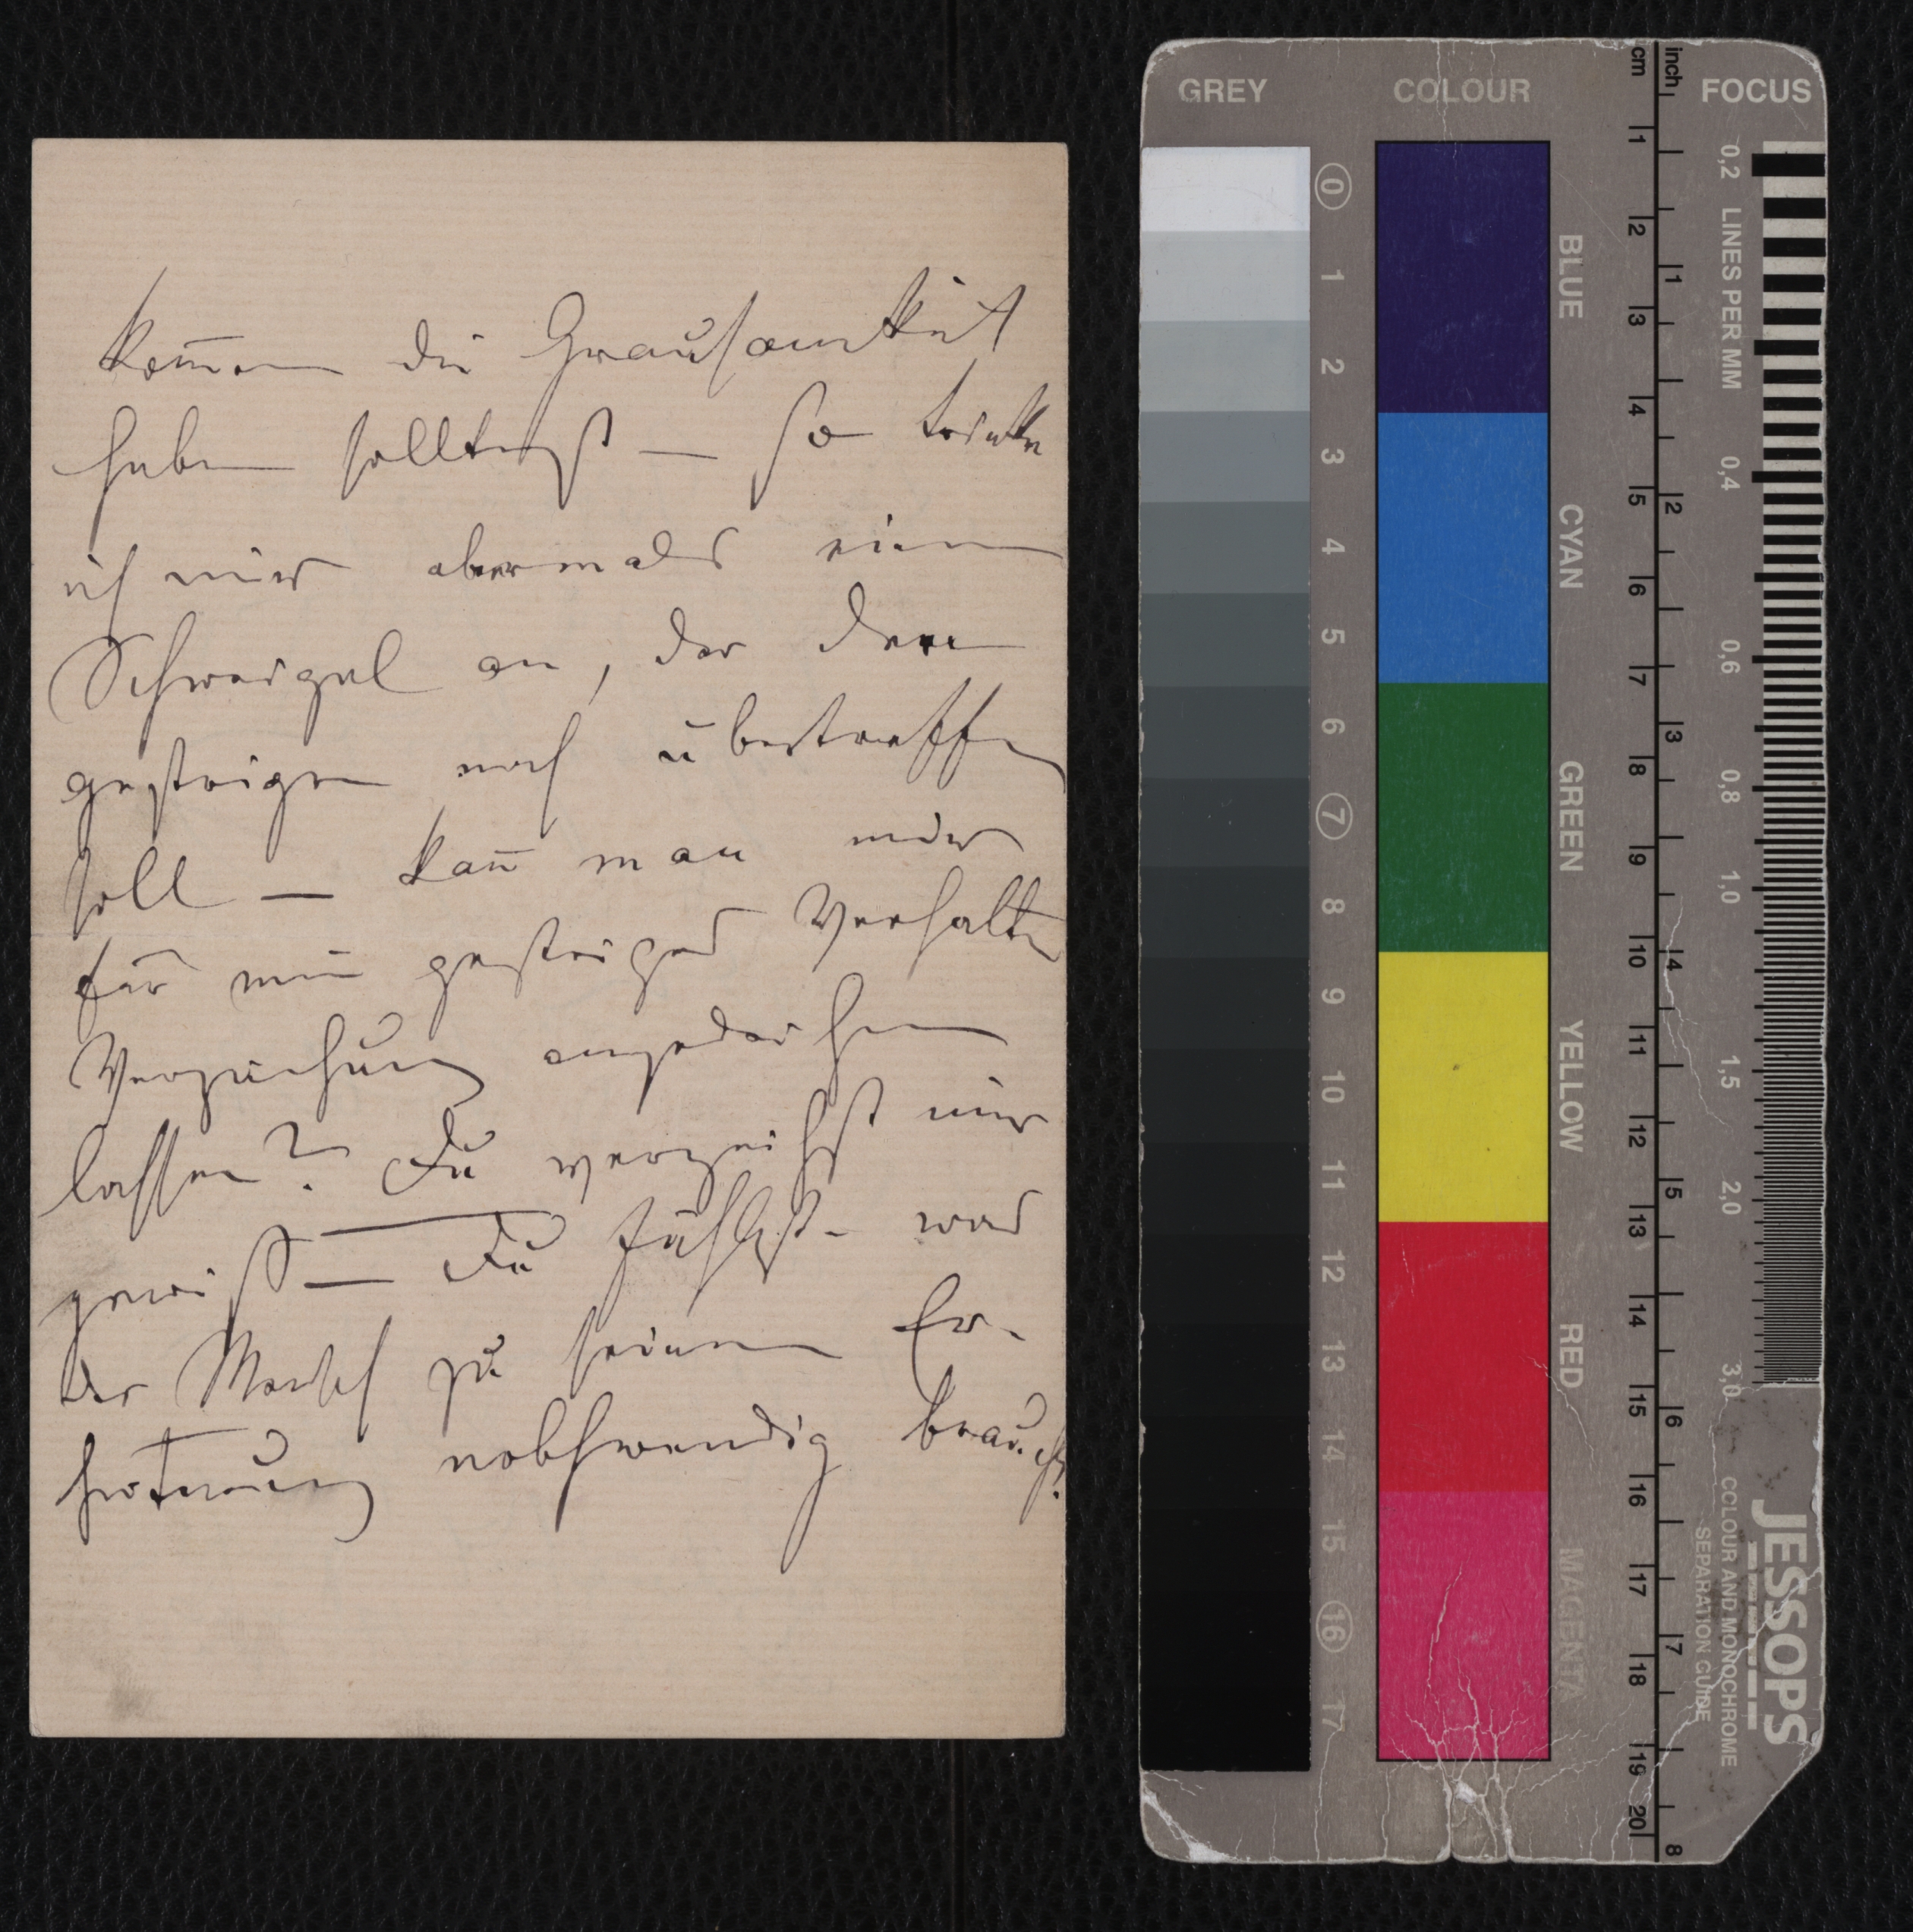 kom̅en die Grausamkeit
haben solltest — so trinke
ich mir abermals einen
Schweigel an, der den
gestrigen noch übertreffen
soll — kan̅ man mir
für mein gestriges Verhalten
Verzeihung angedeihen
lassen? Du verzeihst mir
gewiß — Du fühlst – was
der Mensch zu seiner Er-
nothwendig braucht.
GREY
COLOUR
FOCUS
cm
inch
0 1 2 3 4 5 6 7 8 9 10 11 12 13 14 15 16 17
BLUE
CYAN
GREEN
YELLOW
RED
MAGENTA
1 2 3 4 5 6 7 8 9 10 11 12 13 14 15 16 17 18 19 20
1 2 3 4 5 6 7 8
0,2 LINES PER MM 0,4 0,6 0,8 1,0 1,5 2,0 3,0
JESSOPS
COLOUR AND MONOCHROME
SEPARATION GUIDE